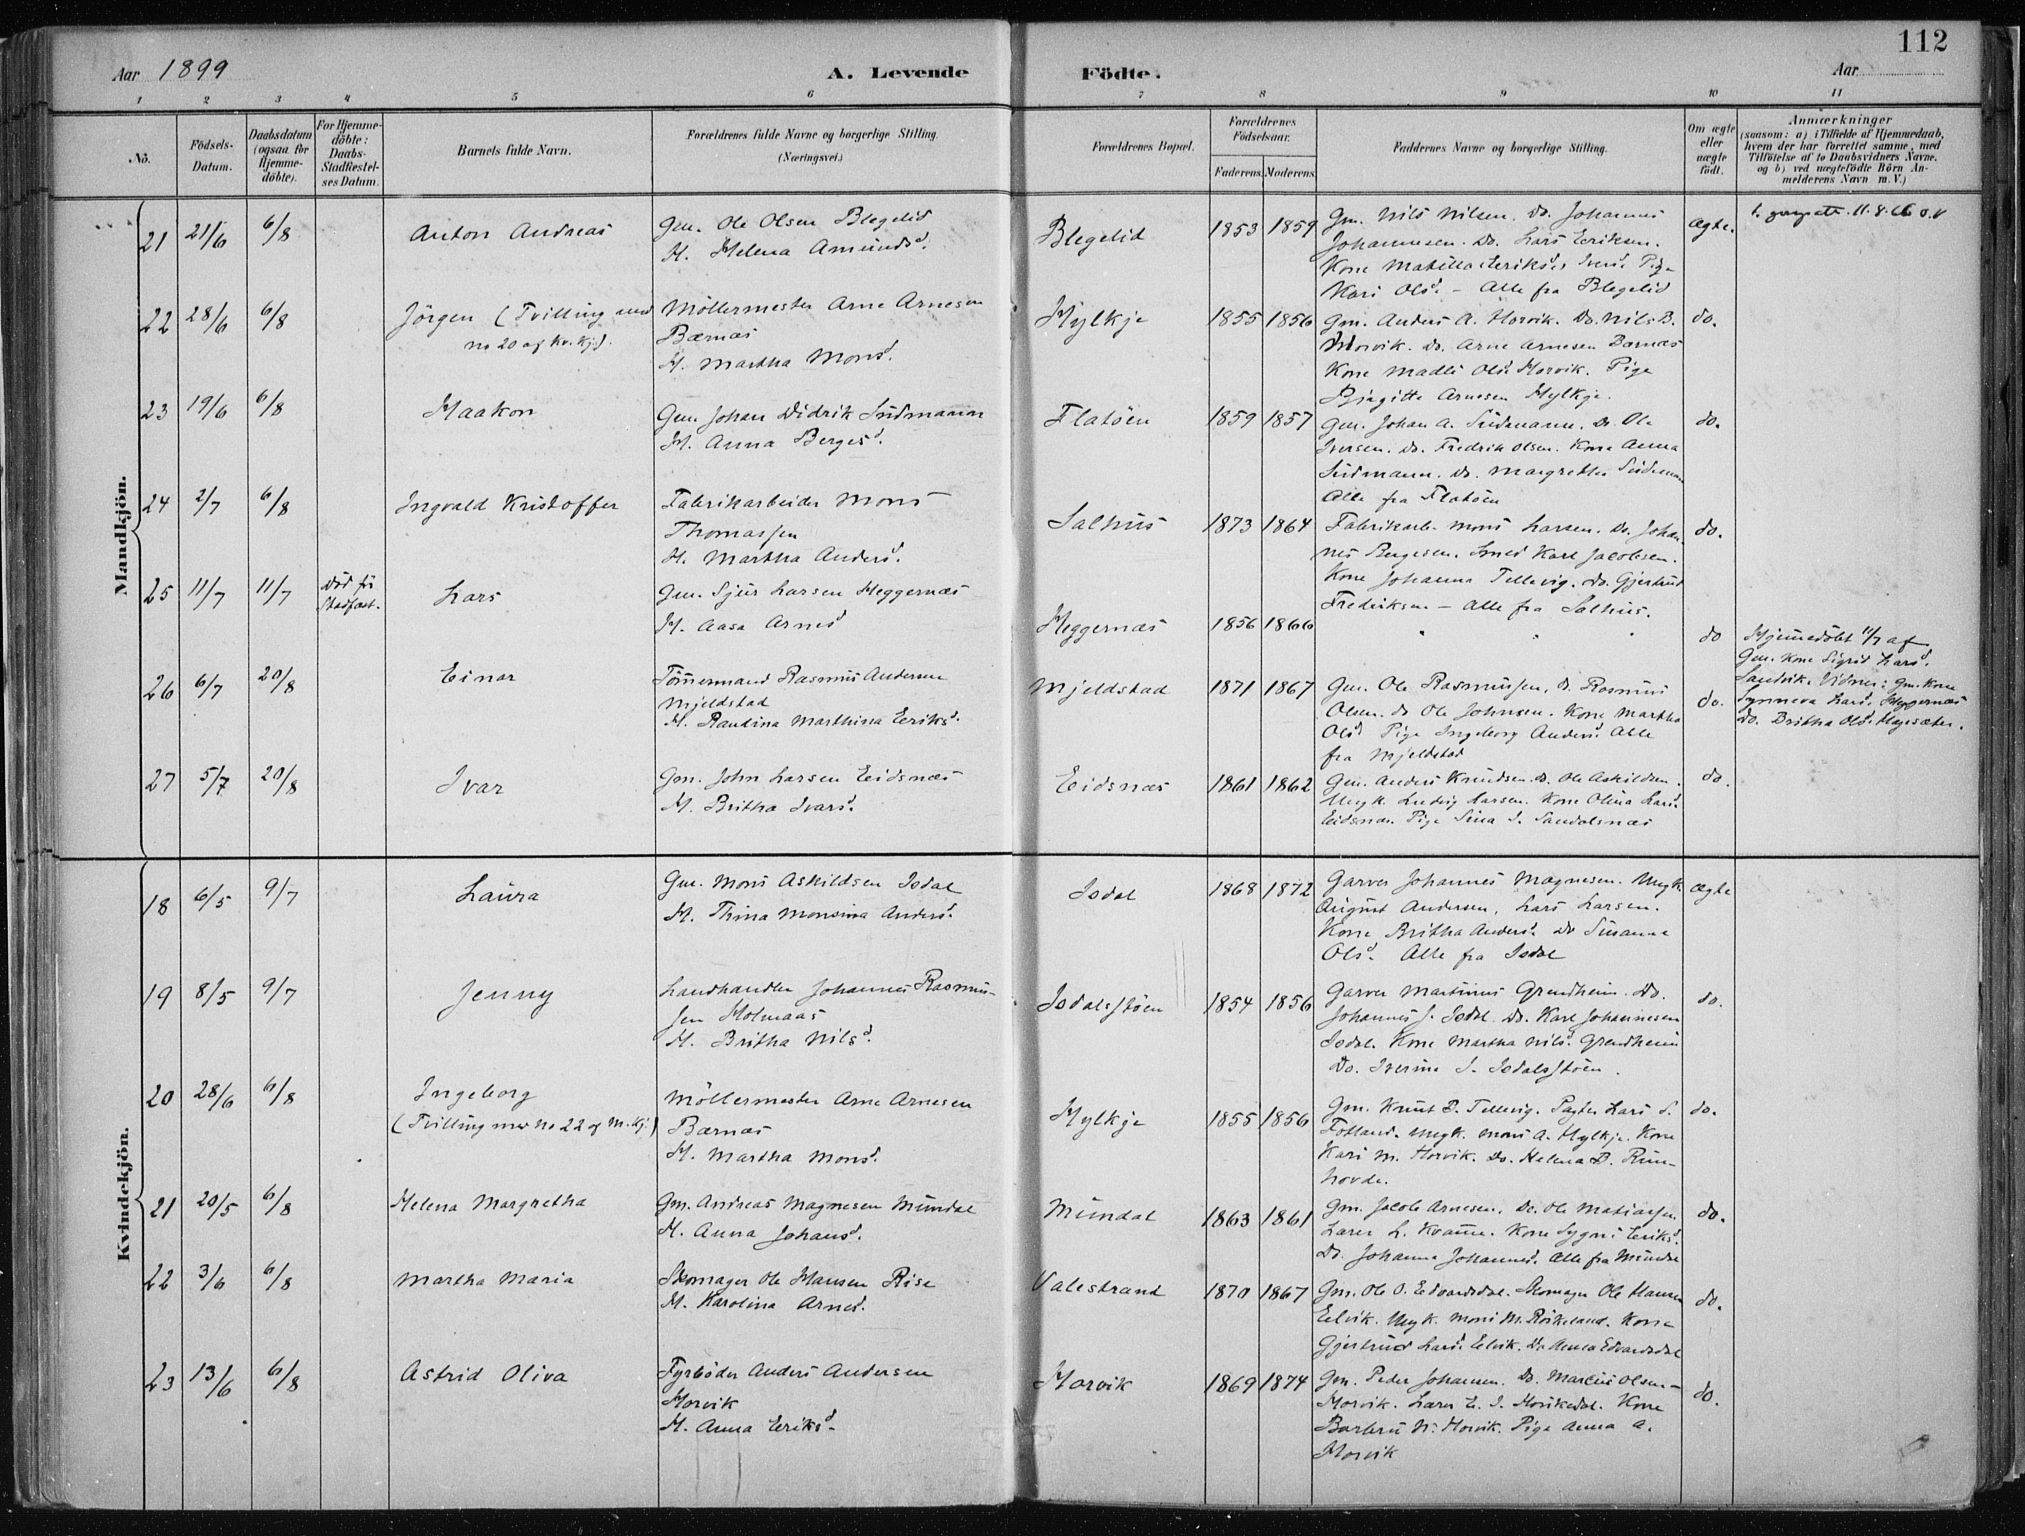 112
Aar 1899
A. Levende
Födte.
Aar
1 2 3 4 5 6 7 8 9 10 11
No.
Födsels-Datum.
Daabsdatum (ogsaa for Hjemme-döbte).
For Hjemme-döbte: Daabs-Stadfæstel-ses Datum.
Barnets fulde Navn.
Forældrenes fulde Navne og borgerlige Stilling. (Næringsvei.)
Forældrenes Bopæl.
Forældrenes Födselsaar.
Faderens. Moderens.
Faddernes Navne og borgerlige Stilling.
Om ægte eller uægte födt.
Anmærkninger
(saasom: a) i Tilfælde af Hjemmedaab,
hvem der har forrettet samme, med
Tilföielse af to Daabsvidners Navne,
og b) ved uægtefödte Börn An-
melderens Navn m. V.)
Mandkjön.
21 21/6 6/8 Anton Andreas
Gm. Ole Olsen Blegelid
H. Helena Amundsd.
Blegelid 1853 1859
Gm. Nils Nilsen. Do. Johannes
Johannesen. Do. Lars Eriksen.
Kone Matilla Eriksd. Pige
Kari Olsd. – Alle fra Blegelid
Ægte.
11.8.66
22 28/6 6/8 Jörgen (Tvilling med
no 20 af Kv. Kj.).
Möllermester Arne Arnesen
Bærnæs
H. Martha Monsd.
Hylkje 1855 1856
Gm. Anders A. Horvik. Do. Nils B.
Horvik. Do. Arne Arnesen Bærnæs
Kone Madli Olsd. Horvik. Pige
Birgitte Arnesen Hylkje.
do.
23 19/6 6/8 Haakon
Gm. Johan Didrik Südmann
H. Anna Bergesd.
Flatöen 1859 1857
Gm. Johan A. Südmann. Do. Ole
Iversen. Do. Fredrik Olsen. Kone Anna
Südmann. Do. Margrethe Südmann
Alle fra Flatöen
do.
24 2/7 6/8 Ingvald Kristoffer
Fabrikarbeider Mons
Thomassen
H. Martha Andersd.
Salhus 1873 1864
Fabrikarb. Mons Larsen. Do. Johan-
nes Bergesen. Smed Karl Jacobsen.
Kone Johanna Tellevig. Do. Gjertrud
Fredriksen – Alle fra Salhus.
do.
25 11/7 11/7 Död för
Stadfæst.
Lars
Gm. Sjur Larsen Heggernæs
H. Aasa Arnesd
Heggernæs 1856 1866
" " "
do
Hjemmedöbt 11/7 af
Gm. Kone Sigrid Larsd.
Sandvik. Vidner: Gm. Kone
Synneva Larsd. Heggernæs
Do. Britha Olsd. Høgesæter.
26 6/7 20/8 Einar
Tömmermand Rasmus Andersen
Mjeldstad
H. Randina Marthina Eriksd.
Mjeldstad 1871 1867
Gm. Ole Rasmussen. Do. Rasmus
Olsen. Do Ole Johnsen. Kone Martha
Olsd Pige Ingeborg Andersd. Alle
fra Mjeldstad
do.
27 5/7 20/8 Ivar
Gm. John Larsen Eidsnæs
H. Britha Ivarsd.
Eidsnæs 1861 1862
Gm. Anders Knudsen. Do. Ole Askildsen.
Ungk. Ludvig Larsen. Kone Olina Larsd.
Eidsnæs. Pige Sina J. Sandalsnæs
do.
Kvindekjön.
18 6/5 9/7 Laura
Gm. Mons Askildsen Isdal
H. Thina Monsina Andersd.
Isdal 1868 1872
Garver Johannes Magnesen. Ungk.
August Andersen, Lars Larsen.
Kone Britha Andersd. Do Susanna
Olsd. Alle fra Isdal
Ægte
19 8/5 9/7 Jenny
Landhandler Johannes Rasmus-
sen Holmaas
H. Britha Nilsd.
Isdalsstöen 1854 1856
Garver Martinus Grendheim. Do.
Johannes J. Isdal. Do. Karl Johannesen
Isdal. Kone Martha Nilsd. Grendheim
Do. Iverine J. Isdalsstöen.
do.
20 28/6 6/8 Ingeborg
(Tvilling med No 22 af M. Kj.)
Möllermester Arne Arnesen
Bærnæs
H. Martha Monsd.
Hylkje 1855 1856
Gm. Knut B. Tellevig. Pagter Lars S.
Totland. Ungk. Mons A. Hylkje. Kone
Kari M. Horvik. Do. Helena B. Run-
hovde.
do.
21 20/5 6/8 Helena Margretha
Gm. Andreas Magnesen Mundal
H. Anna Johansd.
Mundal 1863 1861
Gm. Jacob Arnesen. Do. Ole Matiassen.
Lærer L. Kvamme. Kone Sygni Eriksd.
Do. Johanna Johannesd. Alle fra Mundal
do.
22 3/6 6/8 Martha Maria
Skomager Ole Hansen Rise
H. Karolina Arnesd.
Valestrand 1870 1867
Gm. Ole O. Edvardsdal. Skomager Ole Hansen
Eelvik. Ungk. Mons M. Röikeland. Kone
Gjertrud Larsd. Eelvik. Do Anna Edvardsdal
do.
23 13/6 6/8 Astrid Oliva
Fyrböder Anders Andersen
Horvik
H. Anna Eriksd.
Horvik 1869 1874
Gm. Peder Johansen. Do. Marcus Olsen
Horvik. Lærer E. J. Horvikedal. Kone
Barbru N. Horvik. Pige Anna A.
Horvik
do.